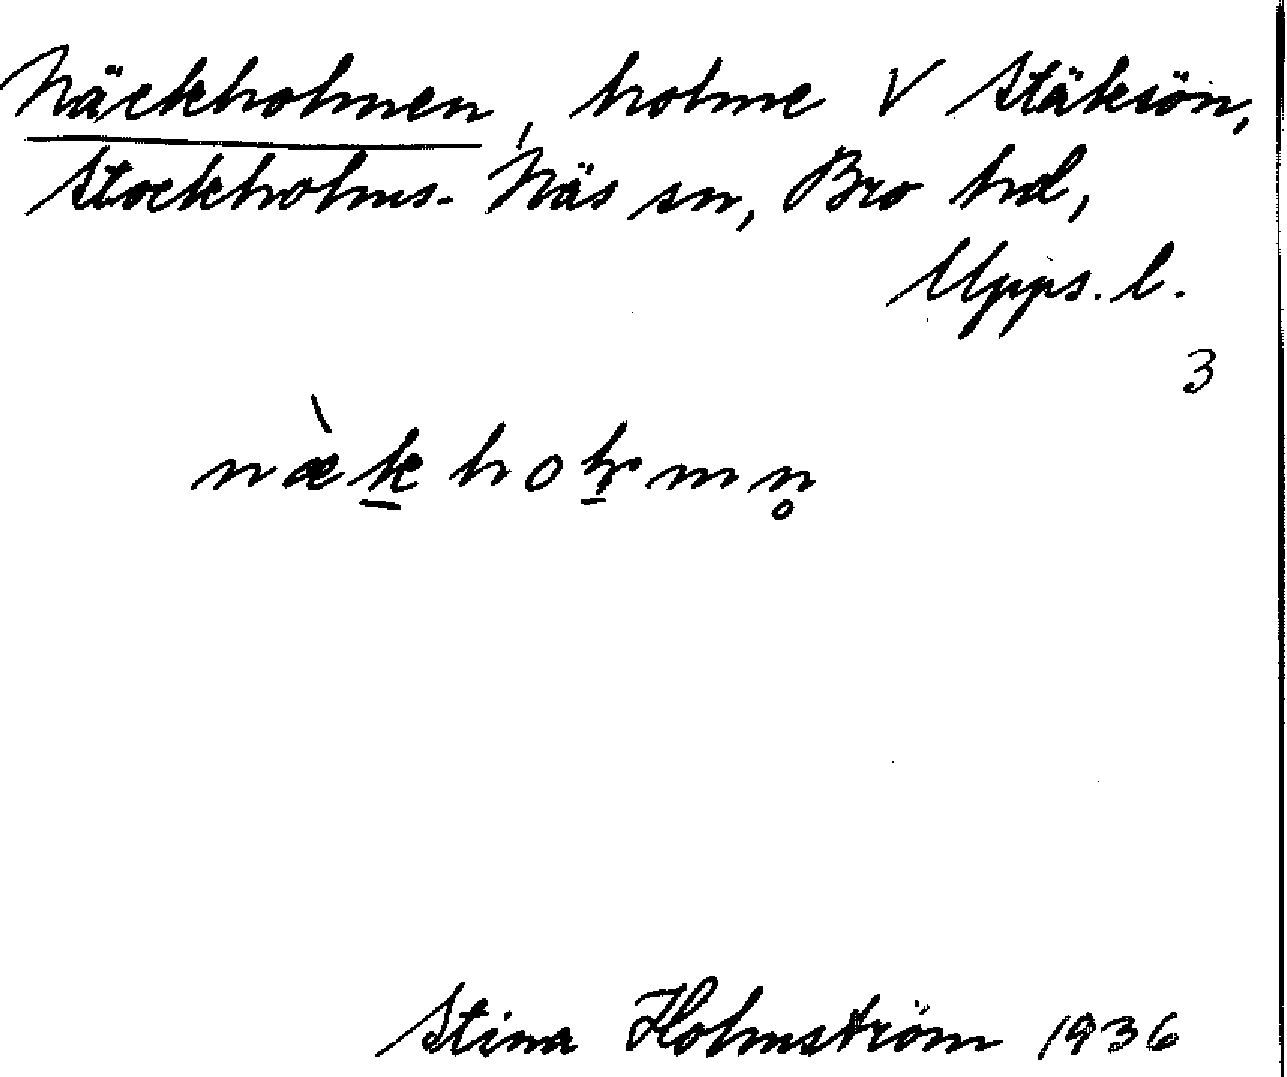 Näckholmen, holme V Stäksön,
Stockholms-Näs sn, Bro hd,
Upps. l.
3
Stina Holmström 1936